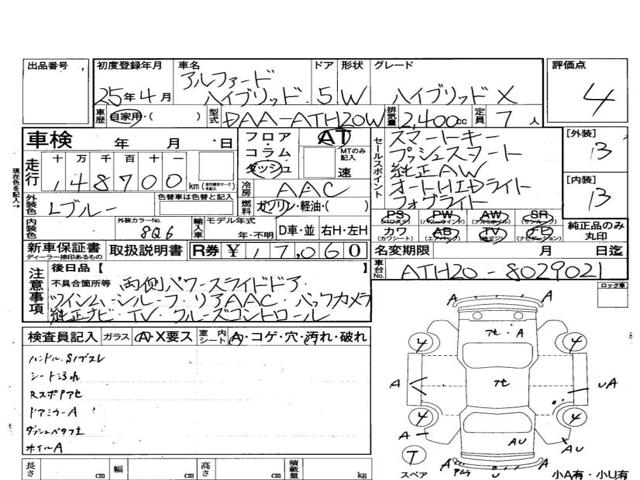 出品番号 初度登録年月 車名 ドア 形状 グレード 評価点
アルファード
25年4月 ハイブリッド 5.W ハイブリッドX 4
車歴 自家用・( ) 型式 DAA-ATH20W 排気量 2,400cc 定員 7人
車検 年 月 日 フロア・コラム・ダッシュ AT MTのみ記入 速
走行 十万千百十一 148700km
冷房 AAC
燃料 ガソリン・軽油・( )
セールスポイント スマートキー
プッシュスタート
純正AW
オートHIDライト
フォグライト
[外装] B
[内装] B
現車名を記入
外装色 Lブルー 色替車は色替と記入
内装色 外装カラーNo. 8Q6 輸入車 モデル年式 年・不明 D車・並 右H・左H
PS PW AW SR
カワ AB TV
純正品のみ丸印
新車保証書 取扱説明書 R券 ¥17,060
ディーラー捺印あるもの
名変期限 月 日迄
車台No. ATH20-8029021
注意事項 後日品[ ]
不具合箇所等 両側パワースライドドア・
ツインムーンルーフ・リアAAC・バックカメラ
純正ナビ・TV・クルーズコントロール
ロック車
検査員記入 ガラス A・X要ス 室内シート A・コゲ・穴・汚れ・破れ
ハンドル・Sノブスレ
シート汚れ
ドアミラーA
ホイルA
A
A
A
UA
A
AU
A
A
4
4
4
4
T
スペア
長さ cm 幅 cm 高さ cm 積載量 kg
小A有・小U有